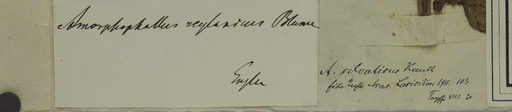 Amorphophallus zeylanicus Blume
Engler
A. silvaticus Kunth
fide Engl. Arac. Lasioideae 1911. 103
VIII. 31